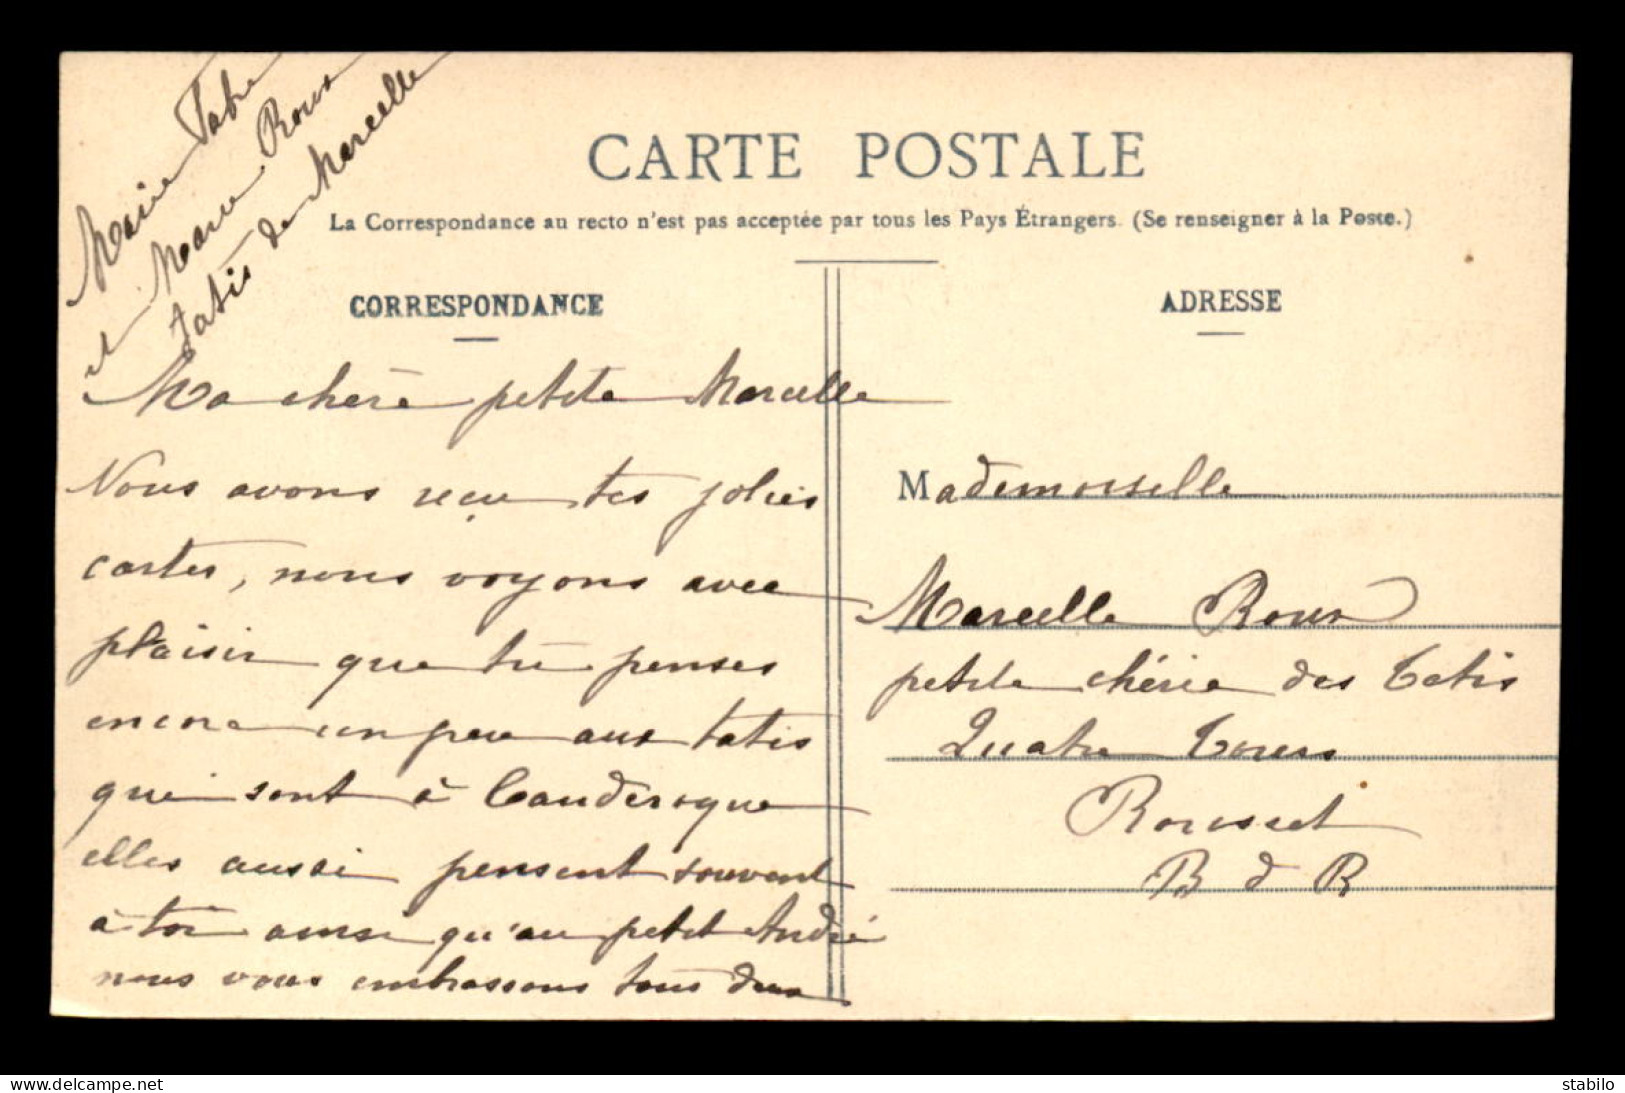 Marie Fabre
et Marie Roux
tatis de Marcelle
CARTE POSTALE
La Correspondance au recto n'est pas acceptée par tous les Pays Étrangers. (Se renseigner à la Poste.)
CORRESPONDANCE
Ma chère petite Marcelle
Nous avons reçu tes jolies
cartes, nous voyons avec
plaisir que tu penses
encore un peu aux tatis
qui sont à Cauderoque
elles aussi pensent souvent
à toi ainsi qu'au petit André
nous vous embrassons tous deux
ADRESSE
Mademoiselle
Marcelle Roux
petite chérie des Tatis
Quatre Tours
Rousset
B d R
delcampe.net
stabilo